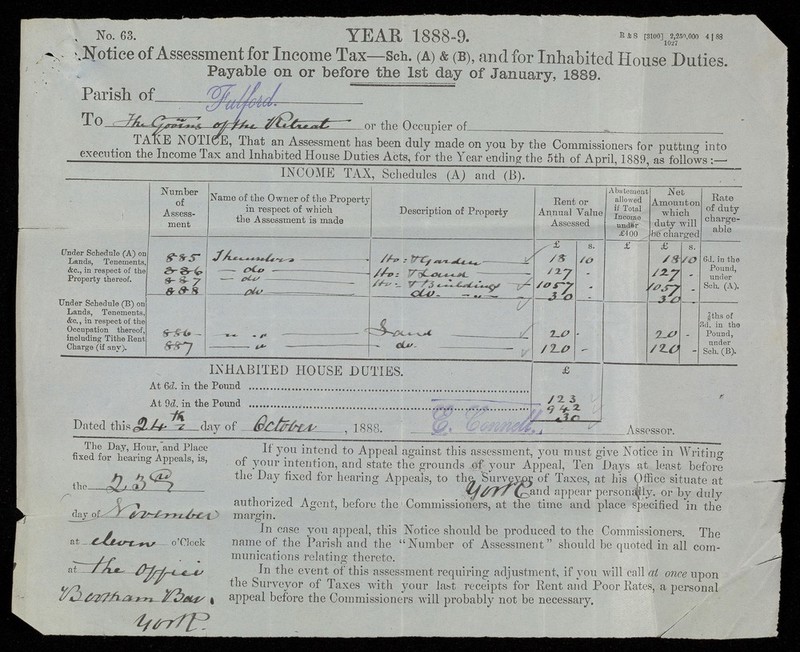 No. 63.
YEAR 1888-9.
R & S [2100] 2,250,000 4 | 88
1027
Notice of Assessment for Income Tax—Sch. (A) & (B), and for Inhabited House Duties.
Payable on or before the 1st day of January, 1889.
Parish of Fulford.
To The Govrs of the Retreat or the Occupier of
TAKE NOTICE, That an Assessment has been duly made on you by the Commissioners for putting into
execution the Income Tax and Inhabited House Duties Acts, for the Year ending the 5th of April, 1889, as follows :—
INCOME TAX, Schedules (A) and (B).
Number of Assessment
Name of the Owner of the Property in respect of which the Assessment is made
Description of Property
Rent or Annual Value Assessed
Abatement allowed if Total Income under £400
Net Amount on which duty will be charged
Rate of duty chargeable
£ s. £ £ s.
Under Schedule (A) on Lands, Tenements, &c., in respect of the Property thereof.
885 Themselves Ho: & Garden 18 10 18 10
886 do Ho: & Land 127 - 127 -
887 do Ho: & Buildings 1057 - 1057 -
888 do do. 30 - 30 -
6d. in the Pound, under Sch. (A).
Under Schedule (B) on Lands, Tenements, &c., in respect of the Occupation thereof, including Tithe Rent Charge (if any).
886 " " Land 20 - 20 -
887 " do. 120 - 120 -
ths of 3d. in the Pound, under Sch. (B).
INHABITED HOUSE DUTIES. £
At 6d. in the Pound
At 9d. in the Pound 123
942
30
Dated this 24th day of October, 1888. Assessor.
The Day, Hour, and Place
fixed for hearing Appeals, is,
the 23rd
day of November
at eleven o'Clock
at The Office
Bootham Bar,
York.
If you intend to Appeal against this assessment, you must give Notice in Writing
of your intention, and state the grounds of your Appeal, Ten Days at least before
the Day fixed for hearing Appeals, to the Surveyor of Taxes, at his Office situate at
York and appear personally, or by duly
authorized Agent, before the Commissioners, at the time and place specified in the
margin.
In case you appeal, this Notice should be produced to the Commissioners. The
name of the Parish and the "Number of Assessment" should be quoted in all com-
munications relating thereto.
In the event of this assessment requiring adjustment, if you will call at once upon
the Surveyor of Taxes with your last receipts for Rent and Poor Rates, a personal
appeal before the Commissioners will probably not be necessary.